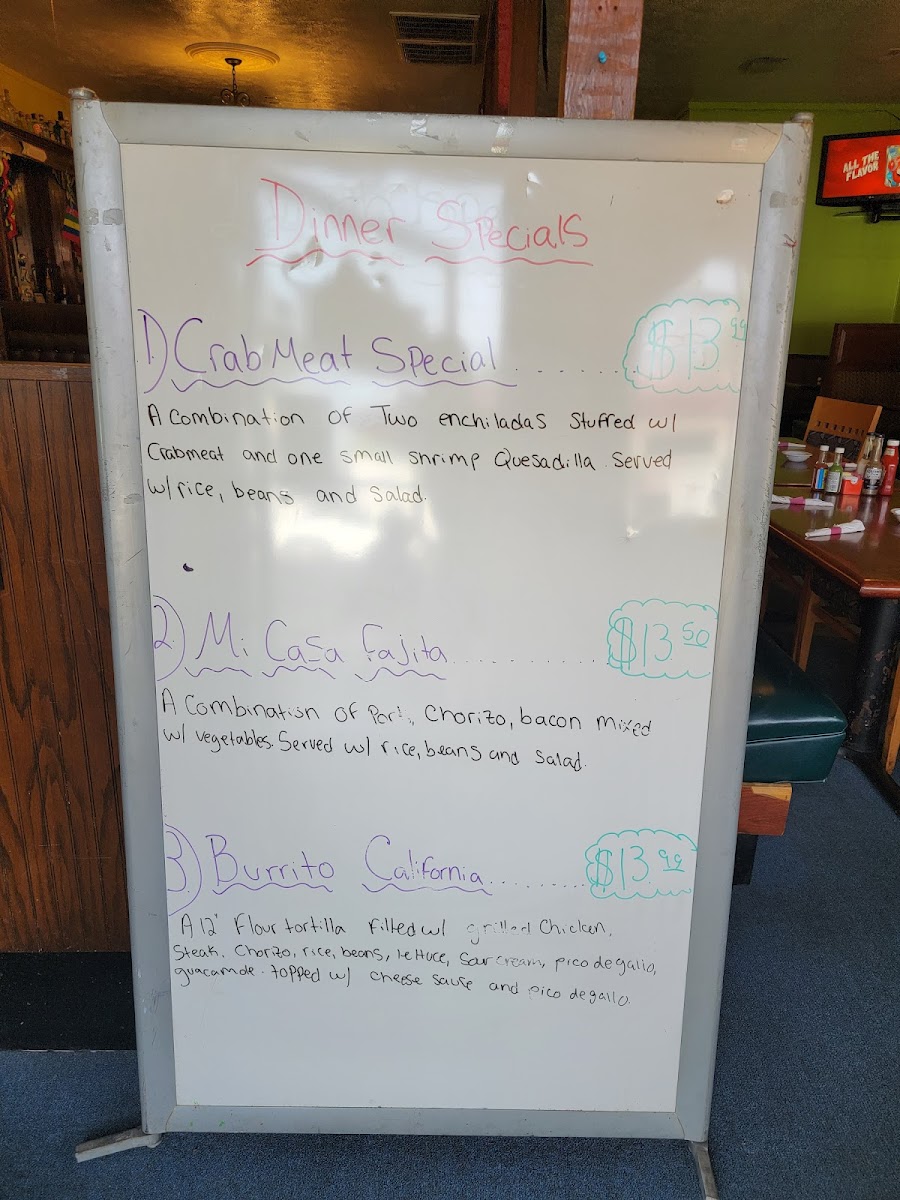 Dinner Specials
1) Crab Meat Special ........ $13.99
A combination of Two enchiladas stuffed w/
Crabmeat and one small shrimp Quesadilla. Served
w/rice, beans and salad.
2) Mi Casa Fajita ........ $13.50
A Combination of Pork, Chorizo, bacon mixed
w/ vegetables. Served w/ rice, beans and salad.
3) Burrito California ........ $13.99
A 12" Flour tortilla filled w/ grilled Chicken,
Steak, Chorizo, rice, beans, lettuce, sour cream, pico de gallo,
guacamole. topped w/ cheese sause and pico de gallo.
ALL THE
FLAVOR